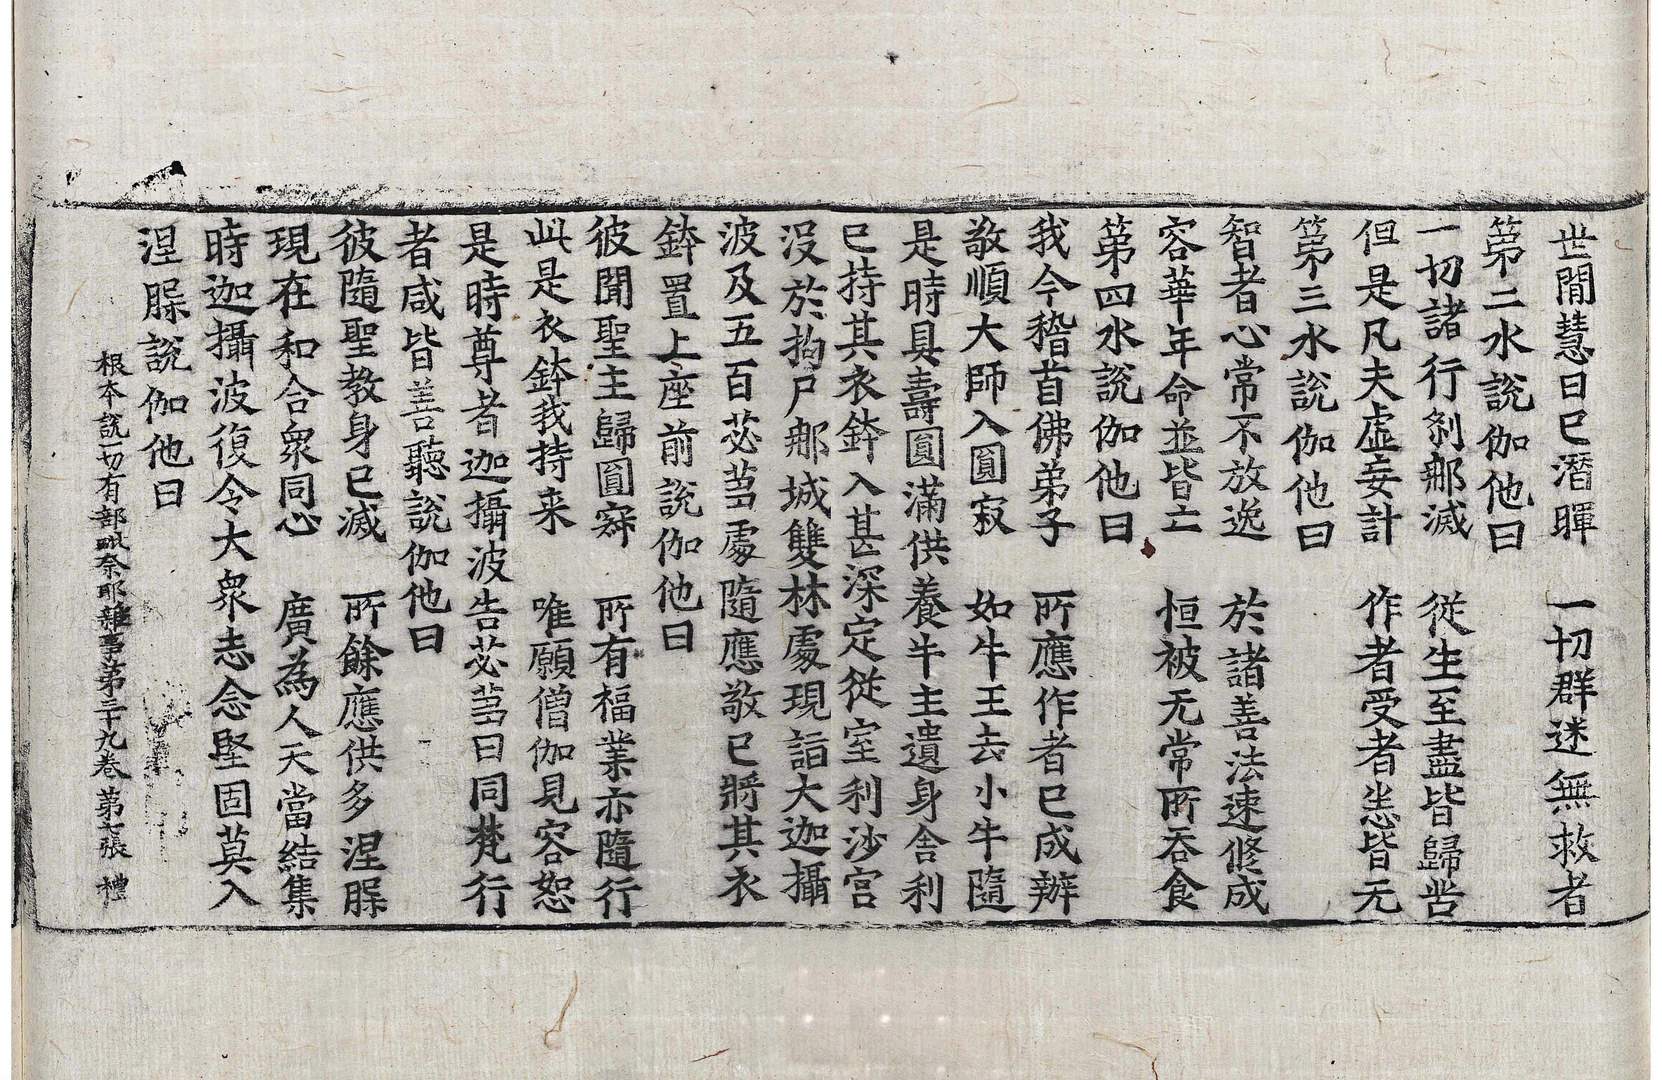 世閒慧日已潛暉　一切群迷無救者
第二水說伽他曰
一切諸行刹那滅　從生至盡皆歸苦
但是凡夫虛妄計　作者受者悉皆无
第三水說伽他曰
智者心常不放逸　於諸善法速修成
容華年命並皆亡　恒被无常所吞食
第四水說伽他曰
我今稽首佛弟子　所應作者已成辦
敬順大師入圓寂　如牛王去小牛隨
是時具壽圓滿供養牛主遺身舍利
已持其衣鉢入甚深定從室利沙宮
沒於拘尸那城雙林處現詣大迦攝
波及五百苾芻處隨應敬已將其衣
鉢置上座前說伽他曰
彼聞聖主歸圓寂　所有福業亦隨行
此是衣鉢我持来　唯願僧伽見容恕
是時尊者迦攝波告苾芻曰同梵行
者咸皆善聽說伽他曰
彼隨聖教身已滅　所餘應供多涅槃
現在和合衆同心　廣為人天當結集
時迦攝波復令大衆志念堅固莫入
涅槃說伽他曰
根本說一切有部毗奈耶雜事第三十九卷　第七張　禮